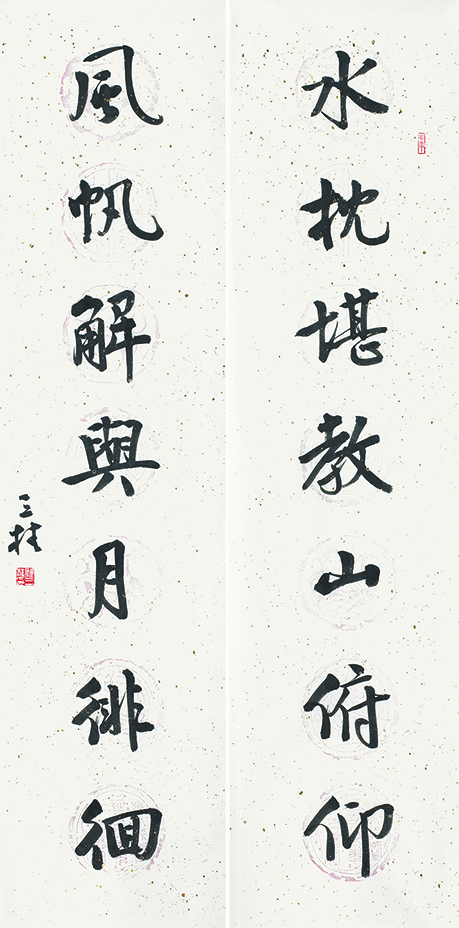 水枕堪教山俯仰
風帆解與月徘徊
三桂